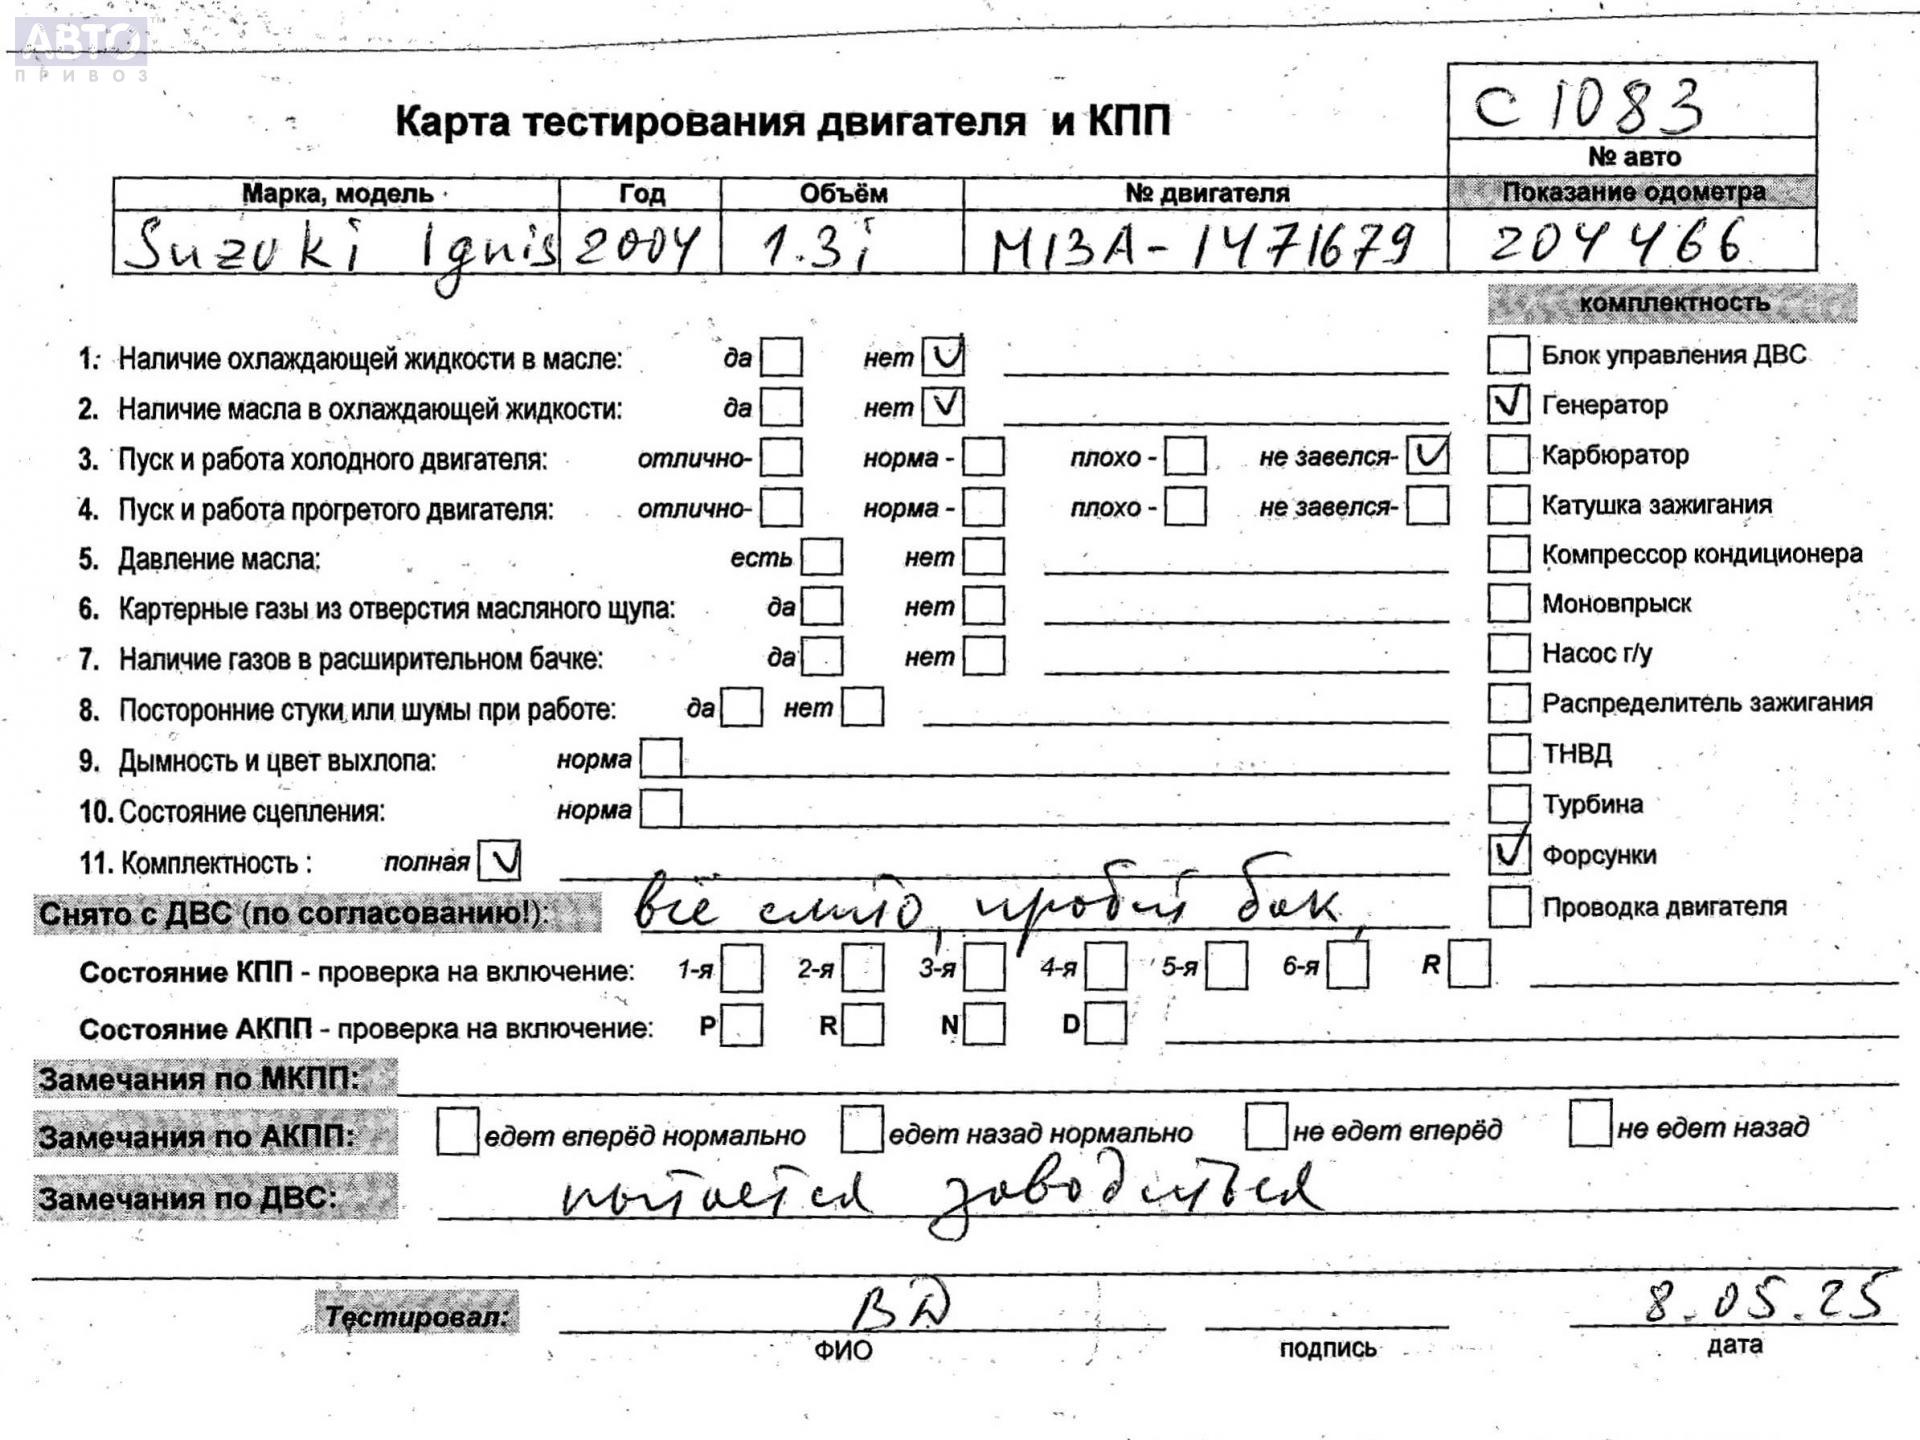 АВТО
ПРИВОЗ
С1083
Карта тестирования двигателя и КПП
№ авто
Марка, модель Год Объём № двигателя Показание одометра
Suzuki Ignis 2004 1.3i M13A-1471679 204466
комплектность
1. Наличие охлаждающей жидкости в масле: да нет ✓
Блок управления ДВС
2. Наличие масла в охлаждающей жидкости: да нет ✓
✓ Генератор
3. Пуск и работа холодного двигателя: отлично- норма - плохо - не завелся- ✓
Карбюратор
4. Пуск и работа прогретого двигателя: отлично- норма - плохо - не завелся-
Катушка зажигания
5. Давление масла: есть нет
Компрессор кондиционера
6. Картерные газы из отверстия масляного щупа: да нет
Моновпрыск
7. Наличие газов в расширительном бачке: да нет
Насос г/у
8. Посторонние стуки или шумы при работе: да нет
Распределитель зажигания
9. Дымность и цвет выхлопа: норма
ТНВД
10. Состояние сцепления: норма
Турбина
11. Комплектность : полная ✓
✓ Форсунки
Снято с ДВС (по согласованию!): всё слито, пробит бак
Проводка двигателя
Состояние КПП - проверка на включение: 1-я 2-я 3-я 4-я 5-я 6-я R
Состояние АКПП - проверка на включение: P R N D
Замечания по МКПП:
Замечания по АКПП: едет вперёд нормально едет назад нормально не едет вперёд не едет назад
Замечания по ДВС: пытается заводиться
Тестировал: ВД 8.05.25
ФИО подпись дата